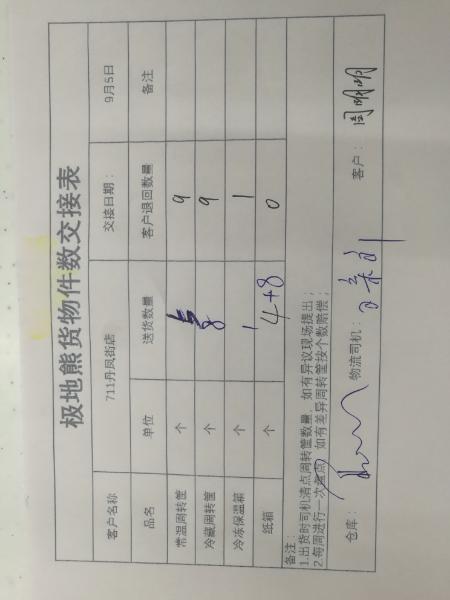 极地熊货物件数交接表
客户名称 711丹凤街店 交接日期： 9月5日
品名 单位 送货数量 客户退回数量 备注
常温周转筐 个 9
冷藏周转筐 个 8 9
冷冻保温箱 个 1 1
纸箱 个 4+8 0
备注：
1.出货时司机清点周转筐数量，如有异议现场提出；
2.每周进行一次盘点，如有差异周转筐按个数赔偿；
仓库： 物流司机： 客户： 周明明